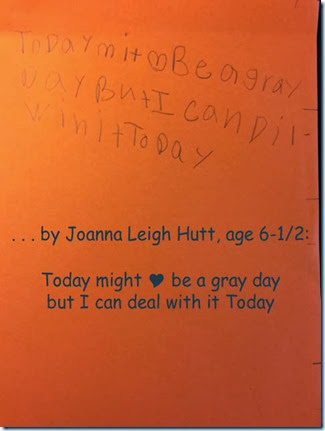 ToDay mit ♡ Be a gray
Day But I can Dil-
With it ToDay
. . . by Joanna Leigh Hutt, age 6-1/2:
Today might ♥ be a gray day
but I can deal with it Today